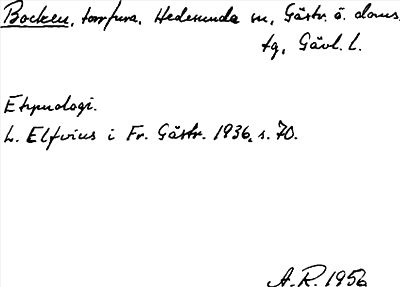 Bocken, torrfura, Hedesunda sn, Gästr. ö. doms.
tg, Gävl. l.
Etymologi.
L. Elfvius i Fr. Gästr. 1936, s. 70.
A. R. 1956